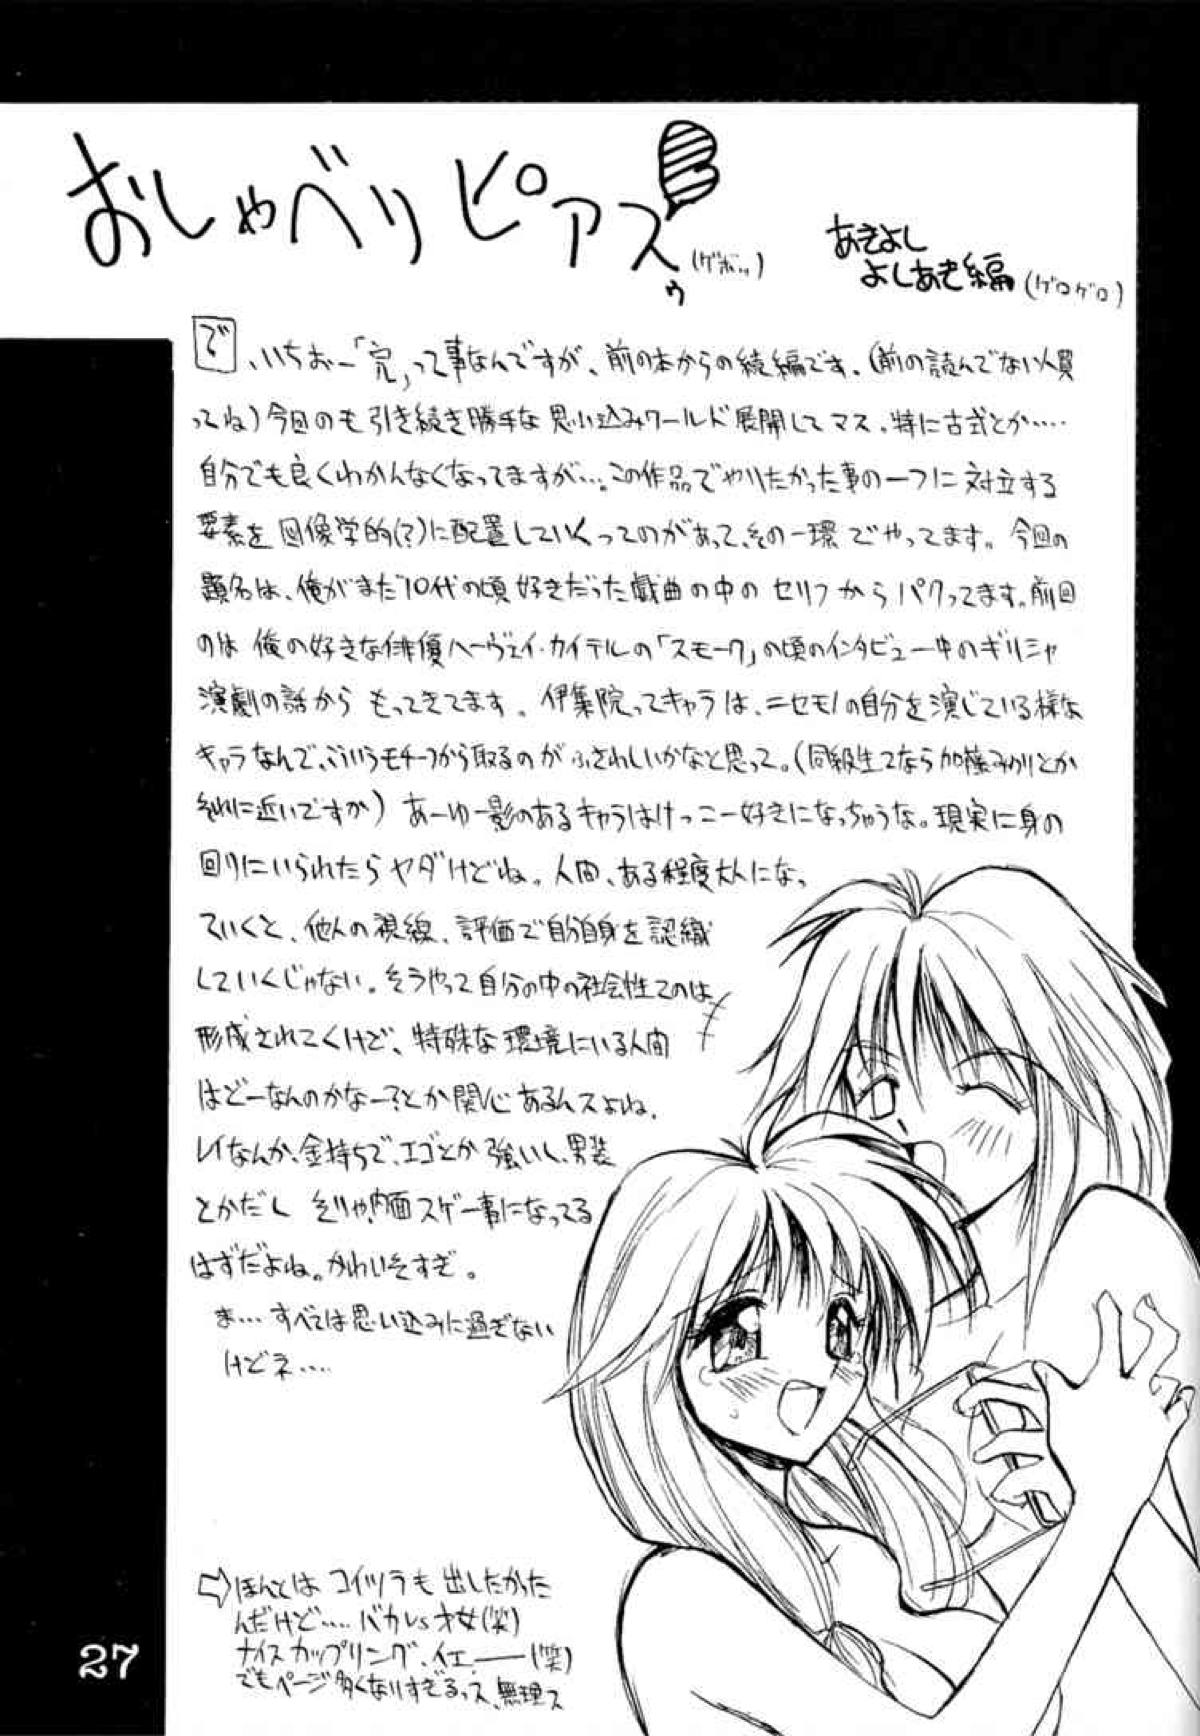 おしゃべりピアスゥ
(ゲボッ)
あきよし
よしあき編(ゲロゲロ)
で、いちおー「完」って事なんですが、前の本からの続編です。(前の読んでない人買
ってね)今回のも引き続き勝手な思い込みワールド展開してマス。特に古式とか……
自分でも良くわかんなくなってますが…。この作品でやりたかった事の一つに対立する
要素を図像学的(?)に配置していくってのがあって、その一環でやってます。今回の
題名は、俺がまだ10代の頃好きだった戯曲の中のセリフからパクってます。前回
のは俺の好きな俳優ハーヴェイ・カイテルの「スモーク」の頃のインタビュー中のギリシャ
演劇の話からもってきてます。伊集院ってキャラは、ニセモノの自分を演じている様な
キャラなんで、こういうモチーフから取るのがふさわしいかなと思って。(同級生2なら加藤みのりとか
それに近いですか)あーゆー影のあるキャラはけっこー好きになっちゃうな。現実に身の
回りにいられたらヤダけどね。人間、ある程度大人になっ
ていくと、他人の視線、評価で自分自身を認識
していくじゃない。そうやって自分の中の社会性てのは
形成されてくけど、特殊な環境にいる人間
はどーなんのかなー?とか関心あるんスよね。
レイなんか、金持ちで、エゴとか強いし、男装
とかだし そりゃ、内面スゲー事になってる
はずだよね。かわいそすぎ。
ま…すべては思い込みに過ぎない
けどネ….
⇨ほんとはコイツラも出したかった
んだけど…. バカvs才女(笑)
ナイスカップリング、イエーー(笑)
でもページ多くなりすぎるっス、無理ス
27